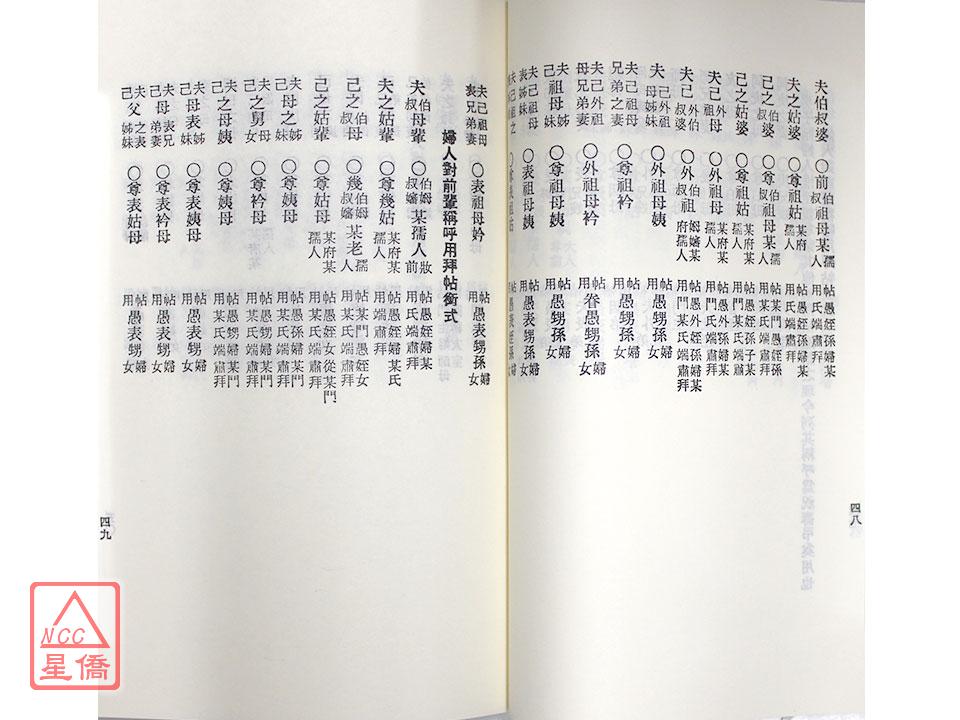 夫伯叔婆 〇前伯叔祖母某孺人 帖用愚姪孫婦某某氏端肅拜
夫之姑婆 〇尊祖姑某府某孺人 帖用愚姪孫婦某某氏端肅拜
己之伯叔婆 〇尊伯叔祖母某孺人 帖用某門愚姪孫女某氏端肅拜
己之姑婆 〇尊祖姑某府某孺人 帖用愚姪孫子某門某氏端肅拜
夫外祖母 〇外祖母某府某孺人 帖用愚外孫婦某門氏端肅拜
夫外伯己叔祖 〇外伯叔祖姆嬸某府孺人 帖用愚外姪孫婦某門某氏端肅拜
夫母姊妹 〇外祖母姨 帖用愚甥孫婦女
夫己外祖母兄弟妻 〇尊祖衿 帖用愚甥孫婦女
夫己外祖母兄弟妻 〇外祖母衿 帖用眷愚甥孫婦女
夫己祖母姊妹 〇尊祖母姨 帖用愚甥孫婦女
夫己祖母表姊妹 〇表祖母姨 帖用愚表甥孫婦女
〇尊表祖姑 帖用愚表姪孫婦女
四八
夫己祖母表兄弟妻 〇表祖母妗 帖用愚表甥孫婦女
婦人對前輩稱呼用拜帖銜式
夫伯叔母輩 〇伯叔姆嬸某孺人妝前 帖用愚姪婦某某氏端肅拜
夫之姑輩 〇尊幾姑某府某孺人 帖用愚姪婦某氏某端肅拜
己之伯叔母 〇幾伯叔姆嬸某老孺人 帖用某門愚姪女某氏端肅拜
己之姑輩 〇尊姑母某府某孺人 帖用愚姪女從某門某氏端肅拜
夫己母之姊妹 〇尊姨母 帖用愚甥婦某門某氏端肅拜
夫己之母舅女 〇尊衿母 帖用愚甥婦某門某氏端肅拜
夫己之母姨 〇尊姨母 帖用愚外甥婦某門某氏端肅拜
夫己母表姊妹 〇尊表姨母 帖用愚表甥婦女
夫己母表兄弟妻 〇尊表衿母 帖用愚表甥婦女
夫己父之表姊妹 〇尊表姑母 帖用愚表甥婦女
四九
NCC
星僑